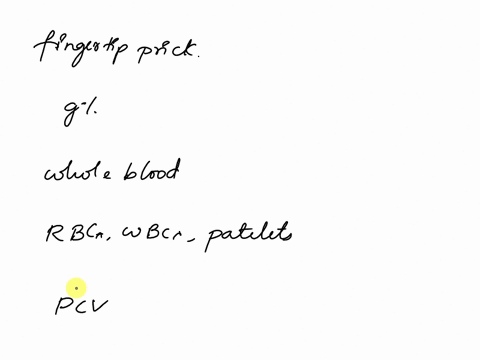 fingertip prick.
g%.
whole blood
RBCs, WBCs, patelets
PCV